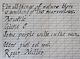 In all things of nature there
is something of the marvelous.
Aristotle
Some people walk in the rain,
others just get wet.
Roger Miller